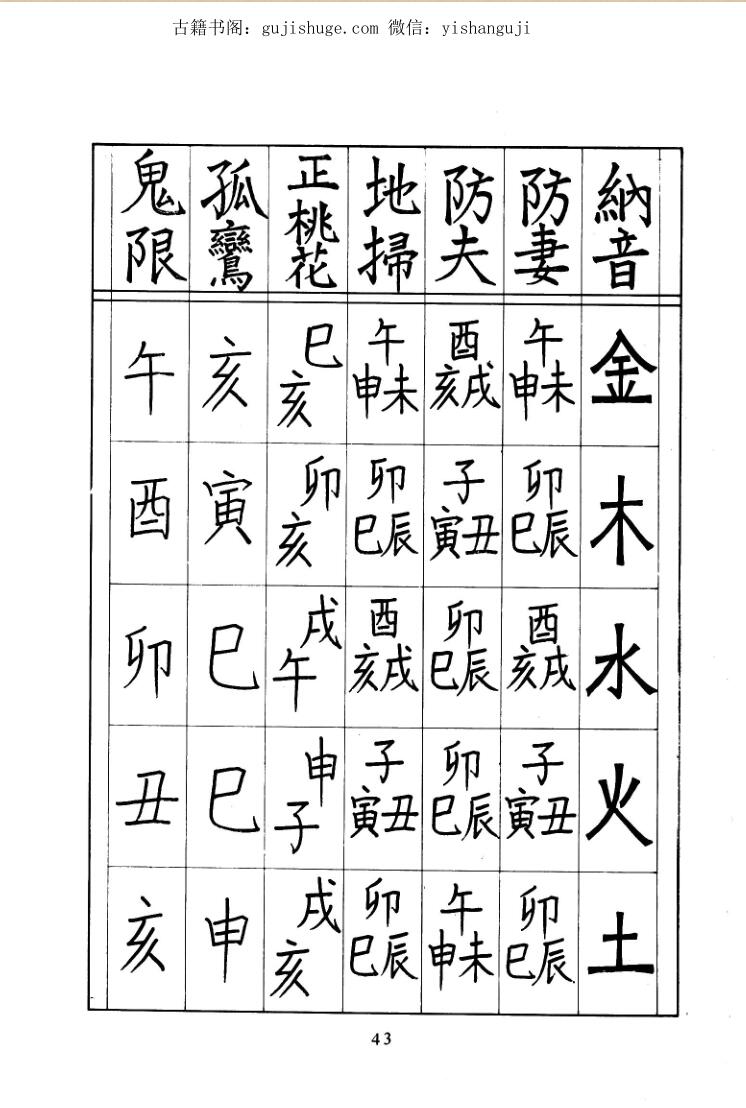 古籍书阁：gujishuge.com 微信：yishanguji
納音 防妻 防夫 地掃 正桃花 孤鸞 鬼限
金 午未申 酉戌亥 午未申 巳亥 亥 午
木 卯辰巳 子丑寅 卯辰巳 卯亥 寅 酉
水 酉戌亥 卯辰巳 酉戌亥 戌午 巳 卯
火 子丑寅 卯辰巳 子丑寅 申子 巳 丑
土 卯辰巳 午未申 卯辰巳 戌亥 申 亥
43